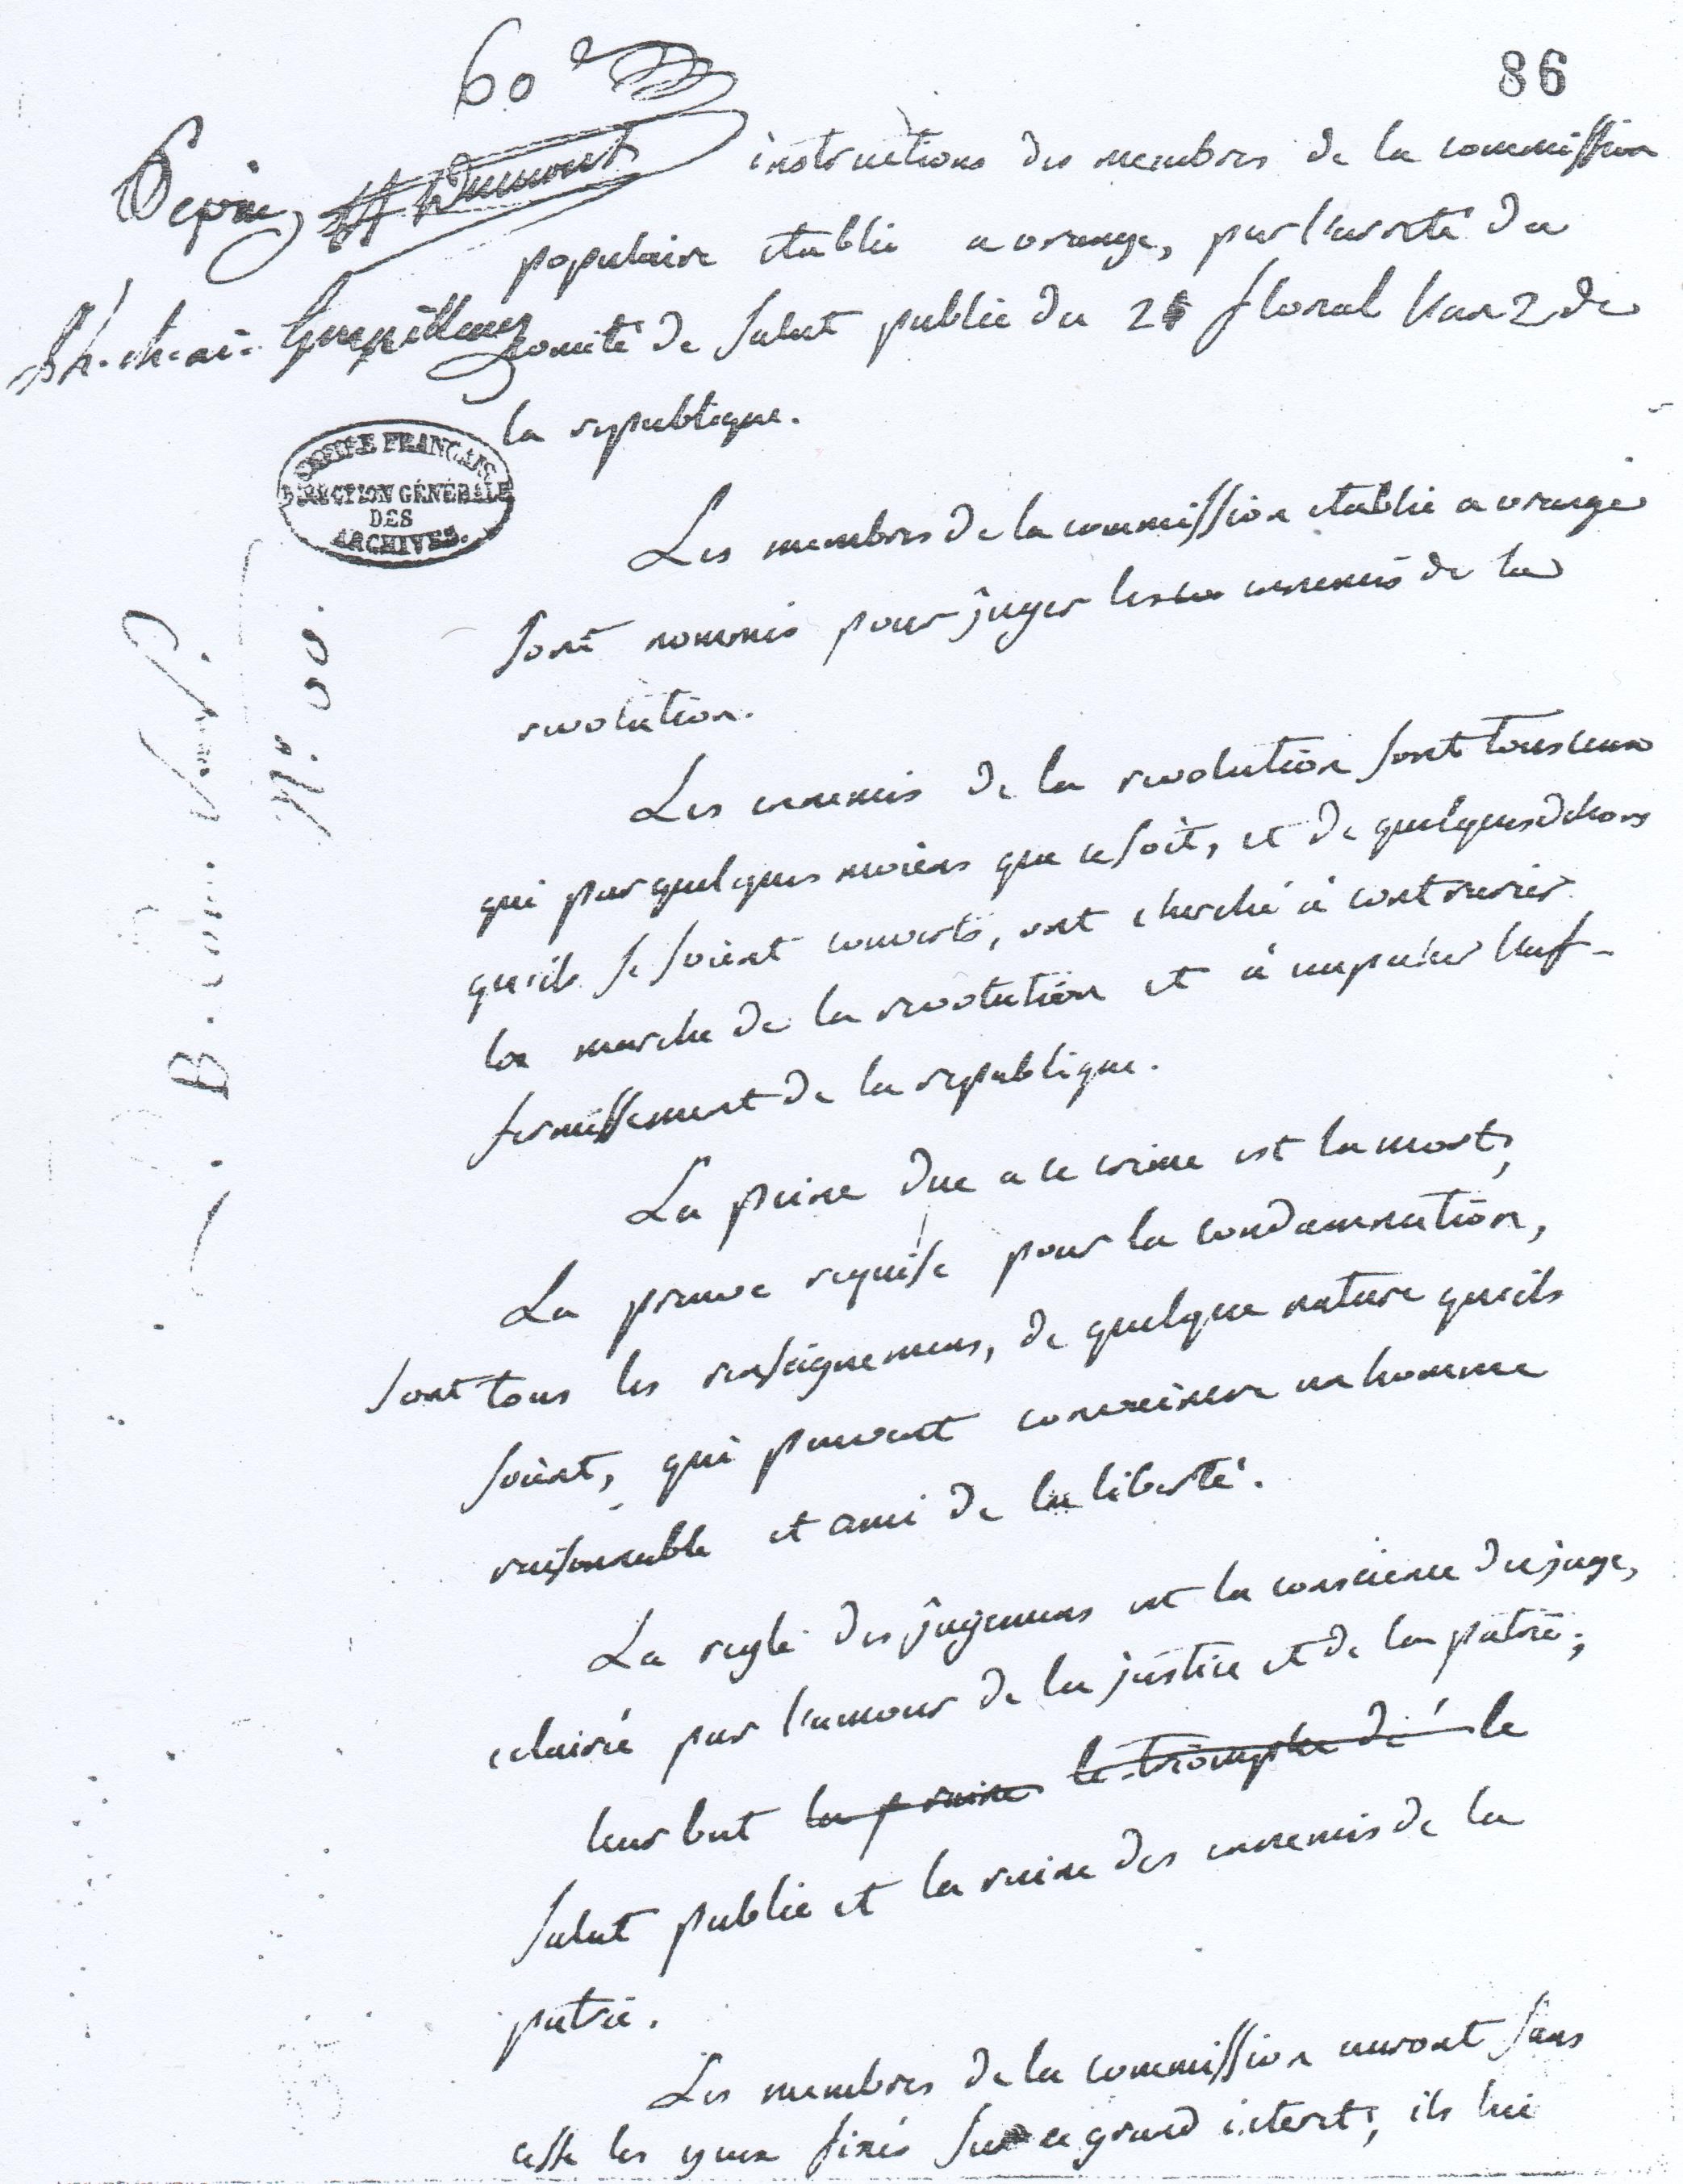 60e
86
instructions des membres de la commission
populaire etablie a orange, par l'arreté du
comité de salut public du 2 floreal l'an 2 de
la republique.
EMPIRE FRANÇAIS
DIRECTION GÉNÉRALE
DES
ARCHIVES.
Les membres de la commission etablie a orange
sont nommés pour juger les ennemis de la
revolution.
Les ennemis de la revolution sont tous ceux
qui par quelques moiens que ce soit, et de quelques dehors
qu'ils se soient couverts, ont cherché à contrarier
la marche de la revolution et à empecher l'af-
fermissement de la republique.
La peine due a ce crime est la mort;
La preuve requise pour la condamnation,
sont tous les renseignemens, de quelque nature qu'ils
soient, qui peuvent convaincre un homme
raisonnable et ami de la liberté.
La regle des jugemens est la conscience du juge,
eclairé par l'amour de la justice et de la patrie;
leur but le triomphe de le
salut public et la ruine des ennemis de la
patrie.
Les membres de la commission auront sans
cesse les yeux fixés sur ce grand interet; ils lui